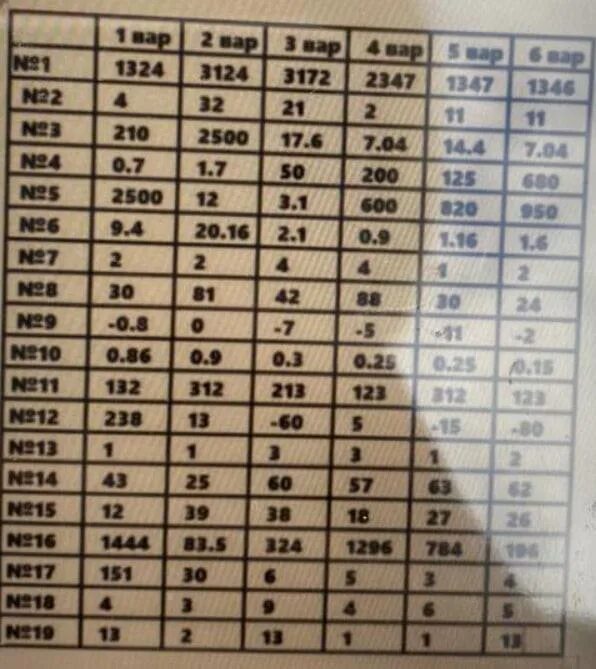 1 вар 2 вар 3 вар 4 вар 5 вар 6 вар
№1 1324 3124 3172 2347 1347 1346
№2 4 32 21 2 11 11
№3 210 2500 17.6 7.04 14.4 7.04
№4 0.7 1.7 50 200 125 680
№5 2500 12 3.1 600 820 950
№6 9.4 20.16 2.1 0.9 1.16 1.6
№7 2 2 4 4 1 2
№8 30 81 42 88 30 24
№9 -0.8 0 -7 -5 -11 -2
№10 0.86 0.9 0.3 0.25 0.25 0.15
№11 132 312 213 123 312 123
№12 238 13 -60 5 -15 -80
№13 1 1 3 3 1 2
№14 43 25 60 57 63 62
№15 12 39 38 18 27 26
№16 1444 83.5 324 1296 784 196
№17 151 30 6 5 3 4
№18 4 3 9 4 6 5
№19 13 2 13 1 1 13